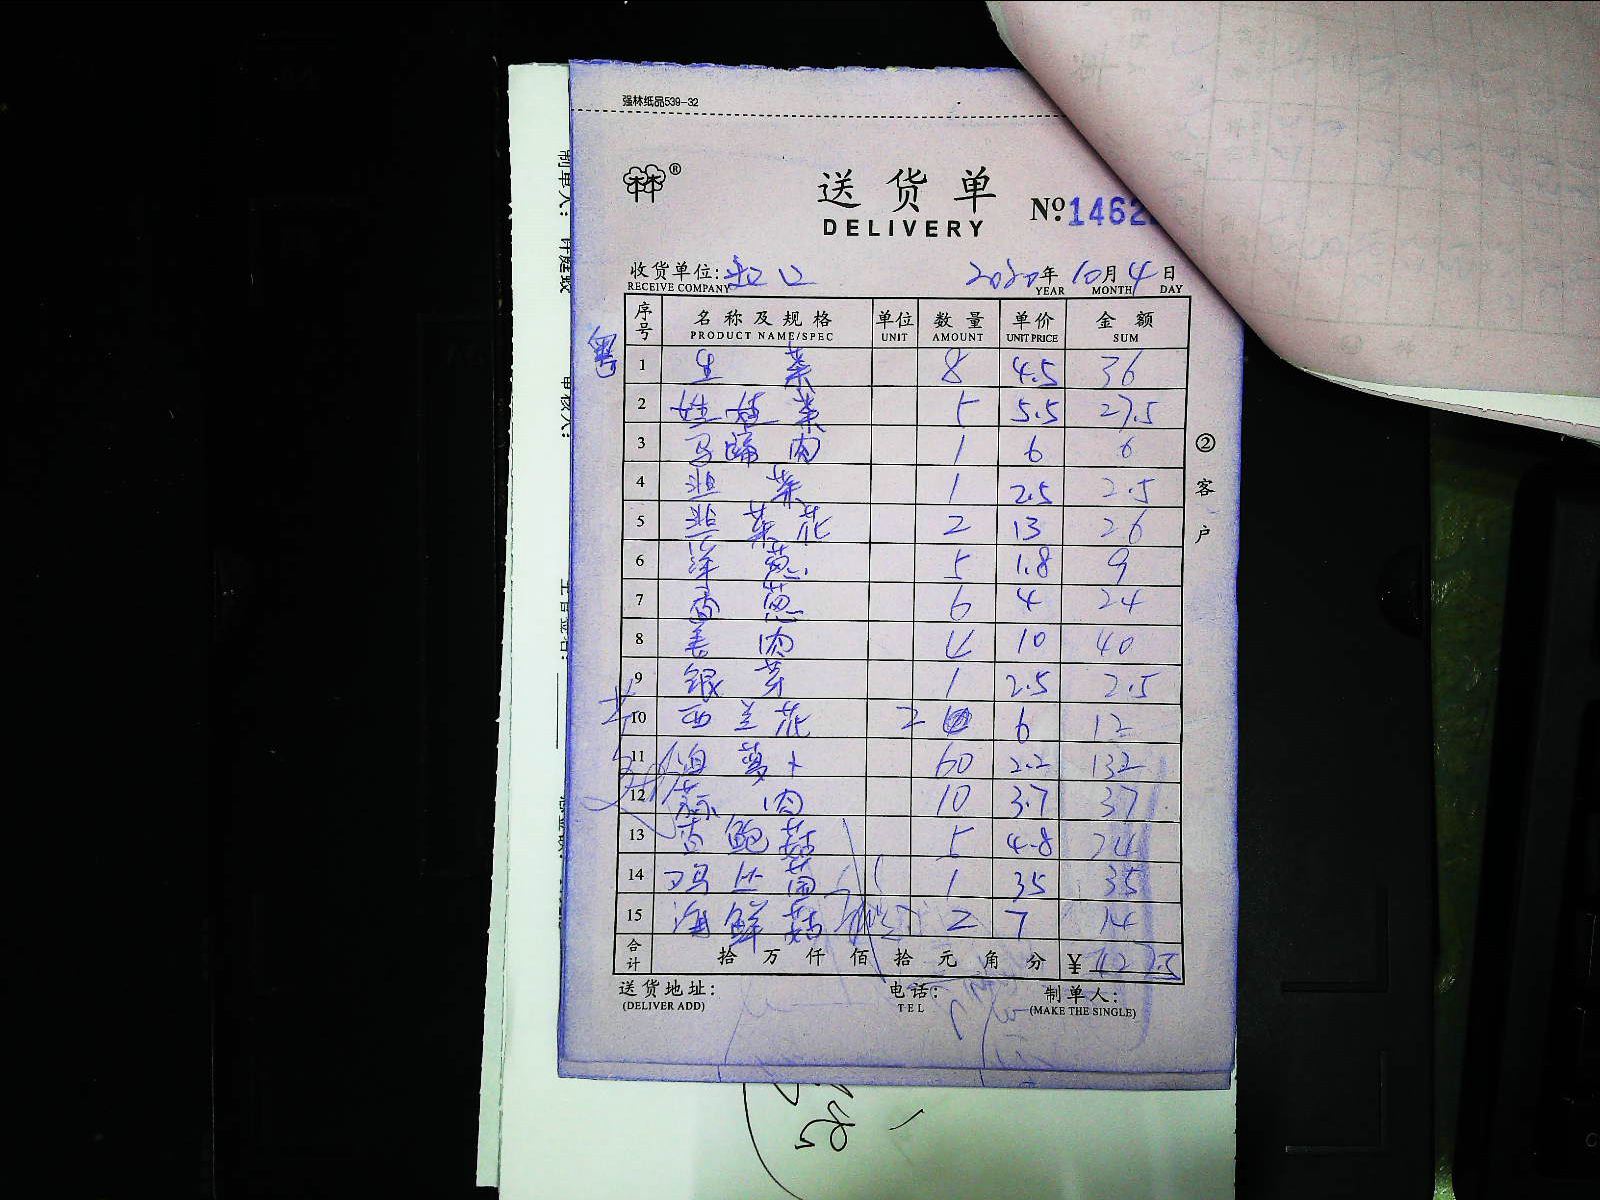 强林纸品539-32
林®
送货单
DELIVERY
№ 1462
收货单位: 2020年10月4日
RECEIVE COMPANY YEAR MONTH DAY
序号 名称及规格 单位 数量 单价 金额
PRODUCT NAME/SPEC UNIT AMOUNT UNIT PRICE SUM
粤
1 生菜 8 4.5 36
2 娃娃菜 5 5.5 27.5
3 马蹄肉 1 6 6
4 韭菜 1 2.5 2.5
5 韭菜花 2 13 26
6 洋葱 5 1.8 9
7 香葱 6 4 24
8 姜肉 4 10 40
9 银芽 1 2.5 2.5
10 西兰花 2 6 12
11 萝卜 60 2.2 132
12 蒜肉 10 3.7 37
13 杏鲍菇 5 4.8 24
14 鸡丛菌 1 35 35
15 海鲜菇 2 7 14
合计 拾万仟佰拾元角分 ¥ 427.5
送货地址: 电话: 制单人:
(DELIVER ADD) TEL (MAKE THE SINGLE)
②客户
制单人:
审核人: